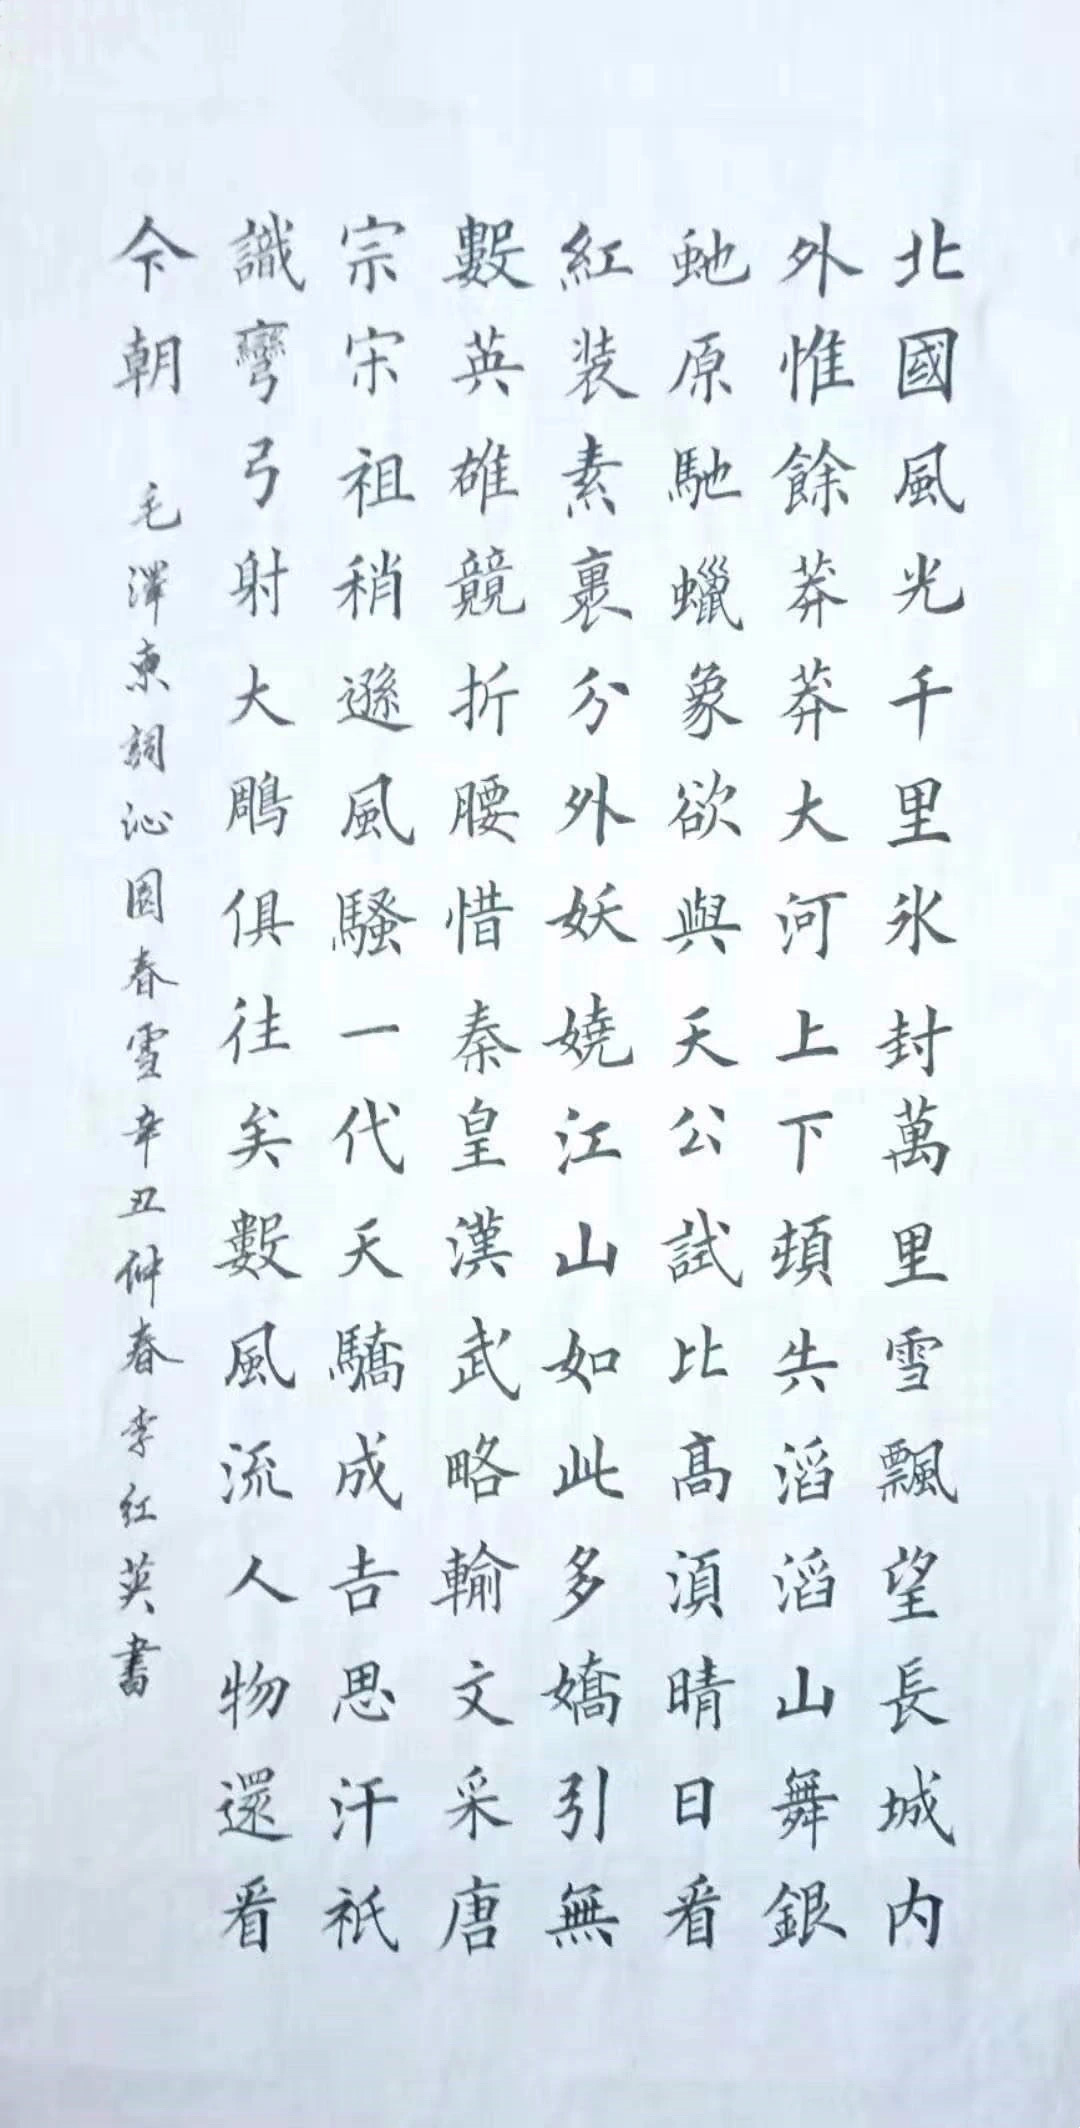 北國風光千里氷封萬里雪飄望長城内
外惟餘莽莽大河上下頓失滔滔山舞銀
虵原馳蠟象欲與天公試比高須晴日看
紅装素裹分外妖嬈江山如此多嬌引無
數英雄競折腰惜秦皇漢武略輸文采唐
宗宋祖稍遜風騷一代天驕成吉思汗祇
識彎弓射大鵰俱往矣數風流人物還看
今朝
毛澤東詞沁園春雪辛丑仲春李红英書